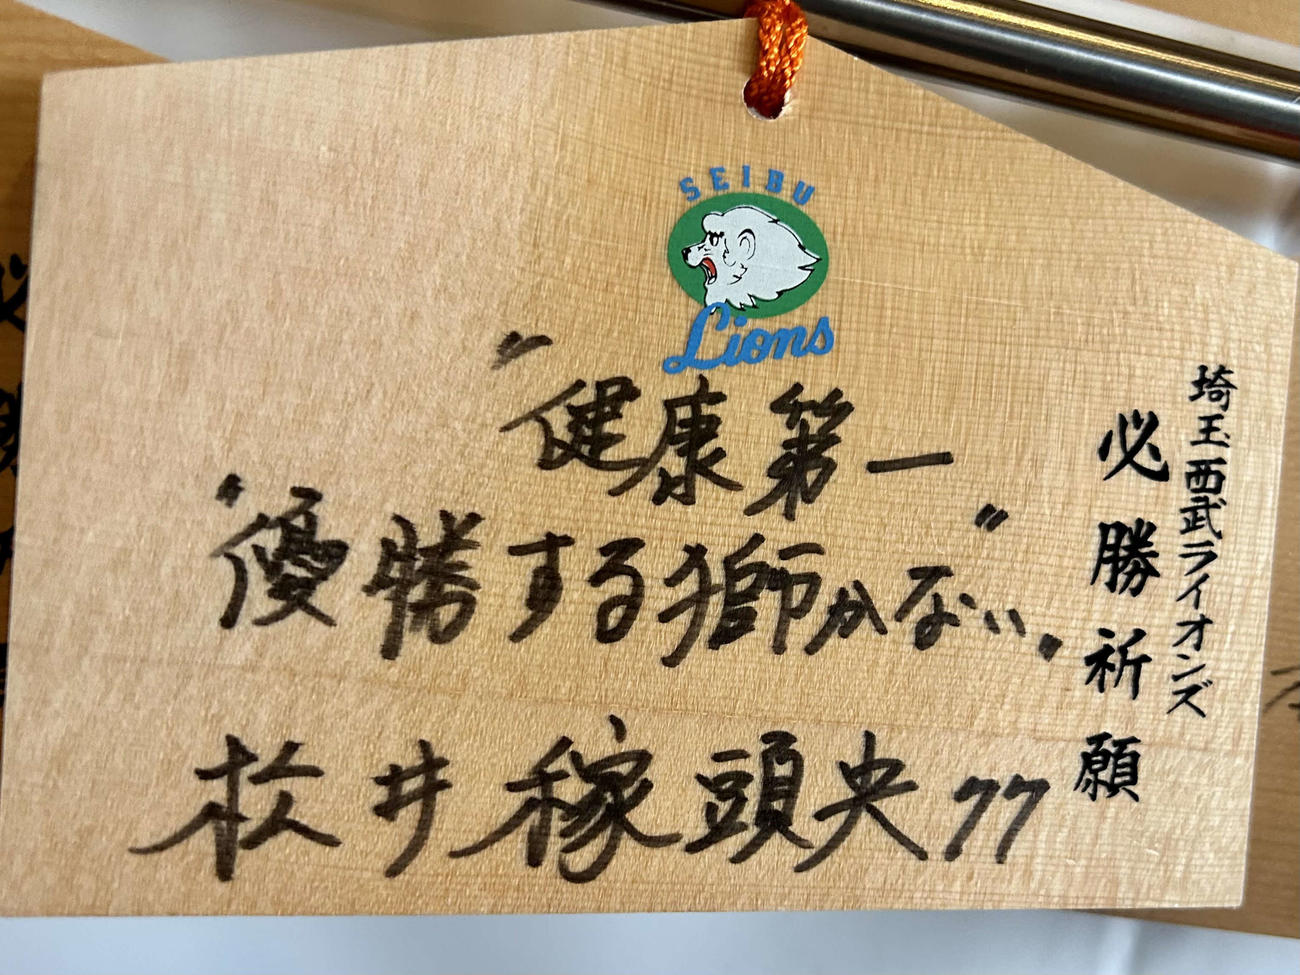 SEIBU
Lions
埼玉西武ライオンズ
必勝祈願
"健康第一"
"優勝する獅かない"
松井稼頭央77